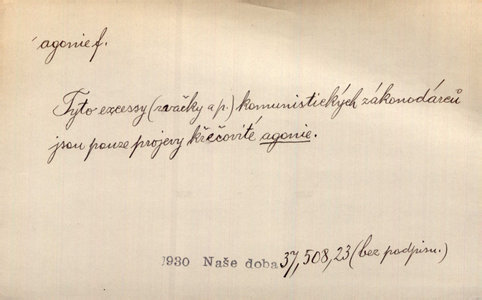 agonie f.
Tyto excessy (rvačky a p.) komunistických zákonodárců
jsou pouze projevy křečovité agonie.
1930 Naše doba 37, 508, 23 (bez podpisu.)